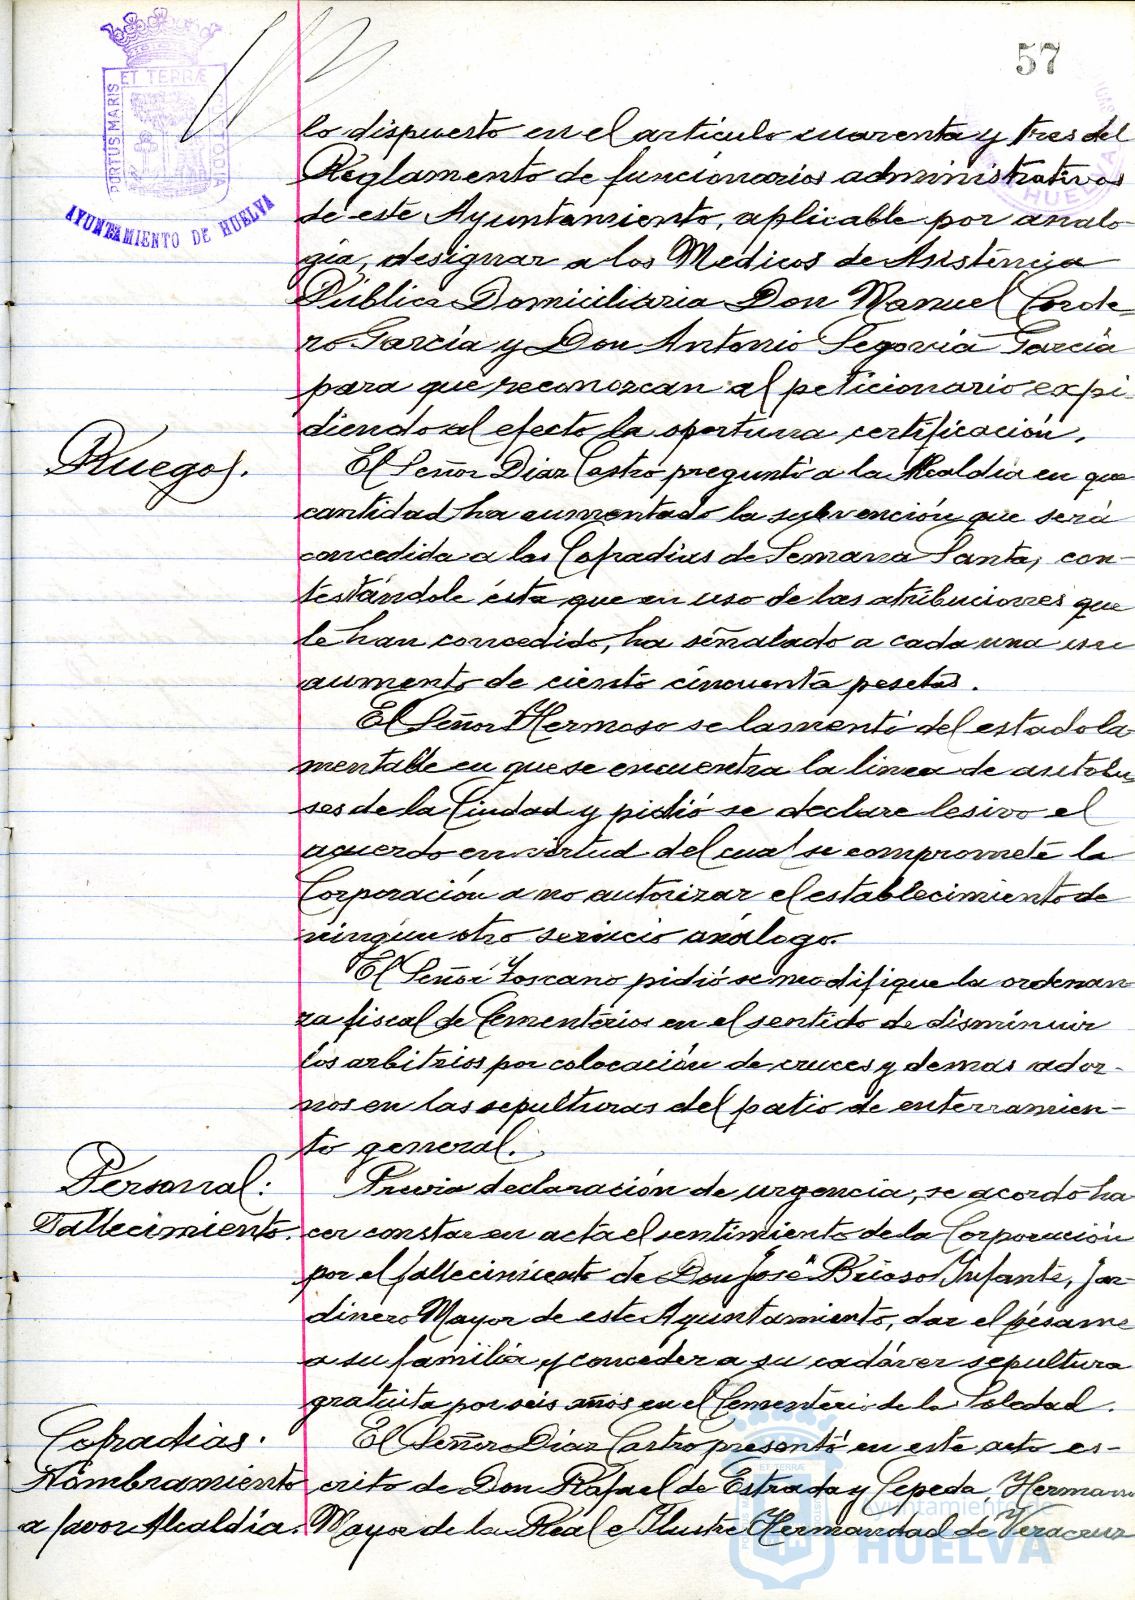 57
ET TERRÆ
PORTUS MARIS
AYUNTAMIENTO DE HUELVA
HUELVA
lo dispuesto en el artículo cuarenta y tres del
Reglamento de funcionarios administrativos
de este Ayuntamiento, aplicable por analo-
gía, designar a los Médicos de Asistencia
Pública Domiciliaria Don Manuel Corde-
ro García y Don Antonio Segovia García
para que reconozcan al peticionario expi-
diendo al efecto la oportuna certificación.
Ruegos.
El Señor Díaz Castro preguntó a la Alcaldía en que
cantidad ha aumentado la subvención que será
concedida a las Cofradías de Semana Santa, con-
testándole ésta que en uso de las atribuciones que
le han concedido, ha señalado a cada una un
aumento de ciento cincuenta pesetas.
El Señor Hermoso se lamentó del estado la
mentable en que se encuentra la linea de autobu-
ses de la Ciudad y pidió se declare lesivo el
acuerdo en virtud del cual se compromete la
Corporación a no autorizar el establecimiento de
ningún otro servicio análogo.
El Señor Toscano pidió se modifique la ordenan
za fiscal de Cementerios en el sentido de disminuir
los arbitrios por colocación de cruces y demas ador-
nos en las sepulturas del patio de enterramien-
to general.
Personal:
Fallecimiento.
Previa declaración de urgencia, se acordó ha
cer constar en acta el sentimiento de la Corporación
por el fallecimiento de Don José Brioso Infante, Jar-
dinero Mayor de este Ayuntamiento, dar el pésame
a su familia y conceder a su cadáver sepultura
gratuita por seis años en el Cementerio de la Soledad.
Cofradias.
Nombramiento
a favor Alcaldía.
El Señor Díaz Castro presentó en este acto es-
crito de Don Rafael de Estrada y Cepeda, Hermano
Mayor de la Real e Ilustre Hermandad de Veracruz
Ayuntamiento de
HUELVA